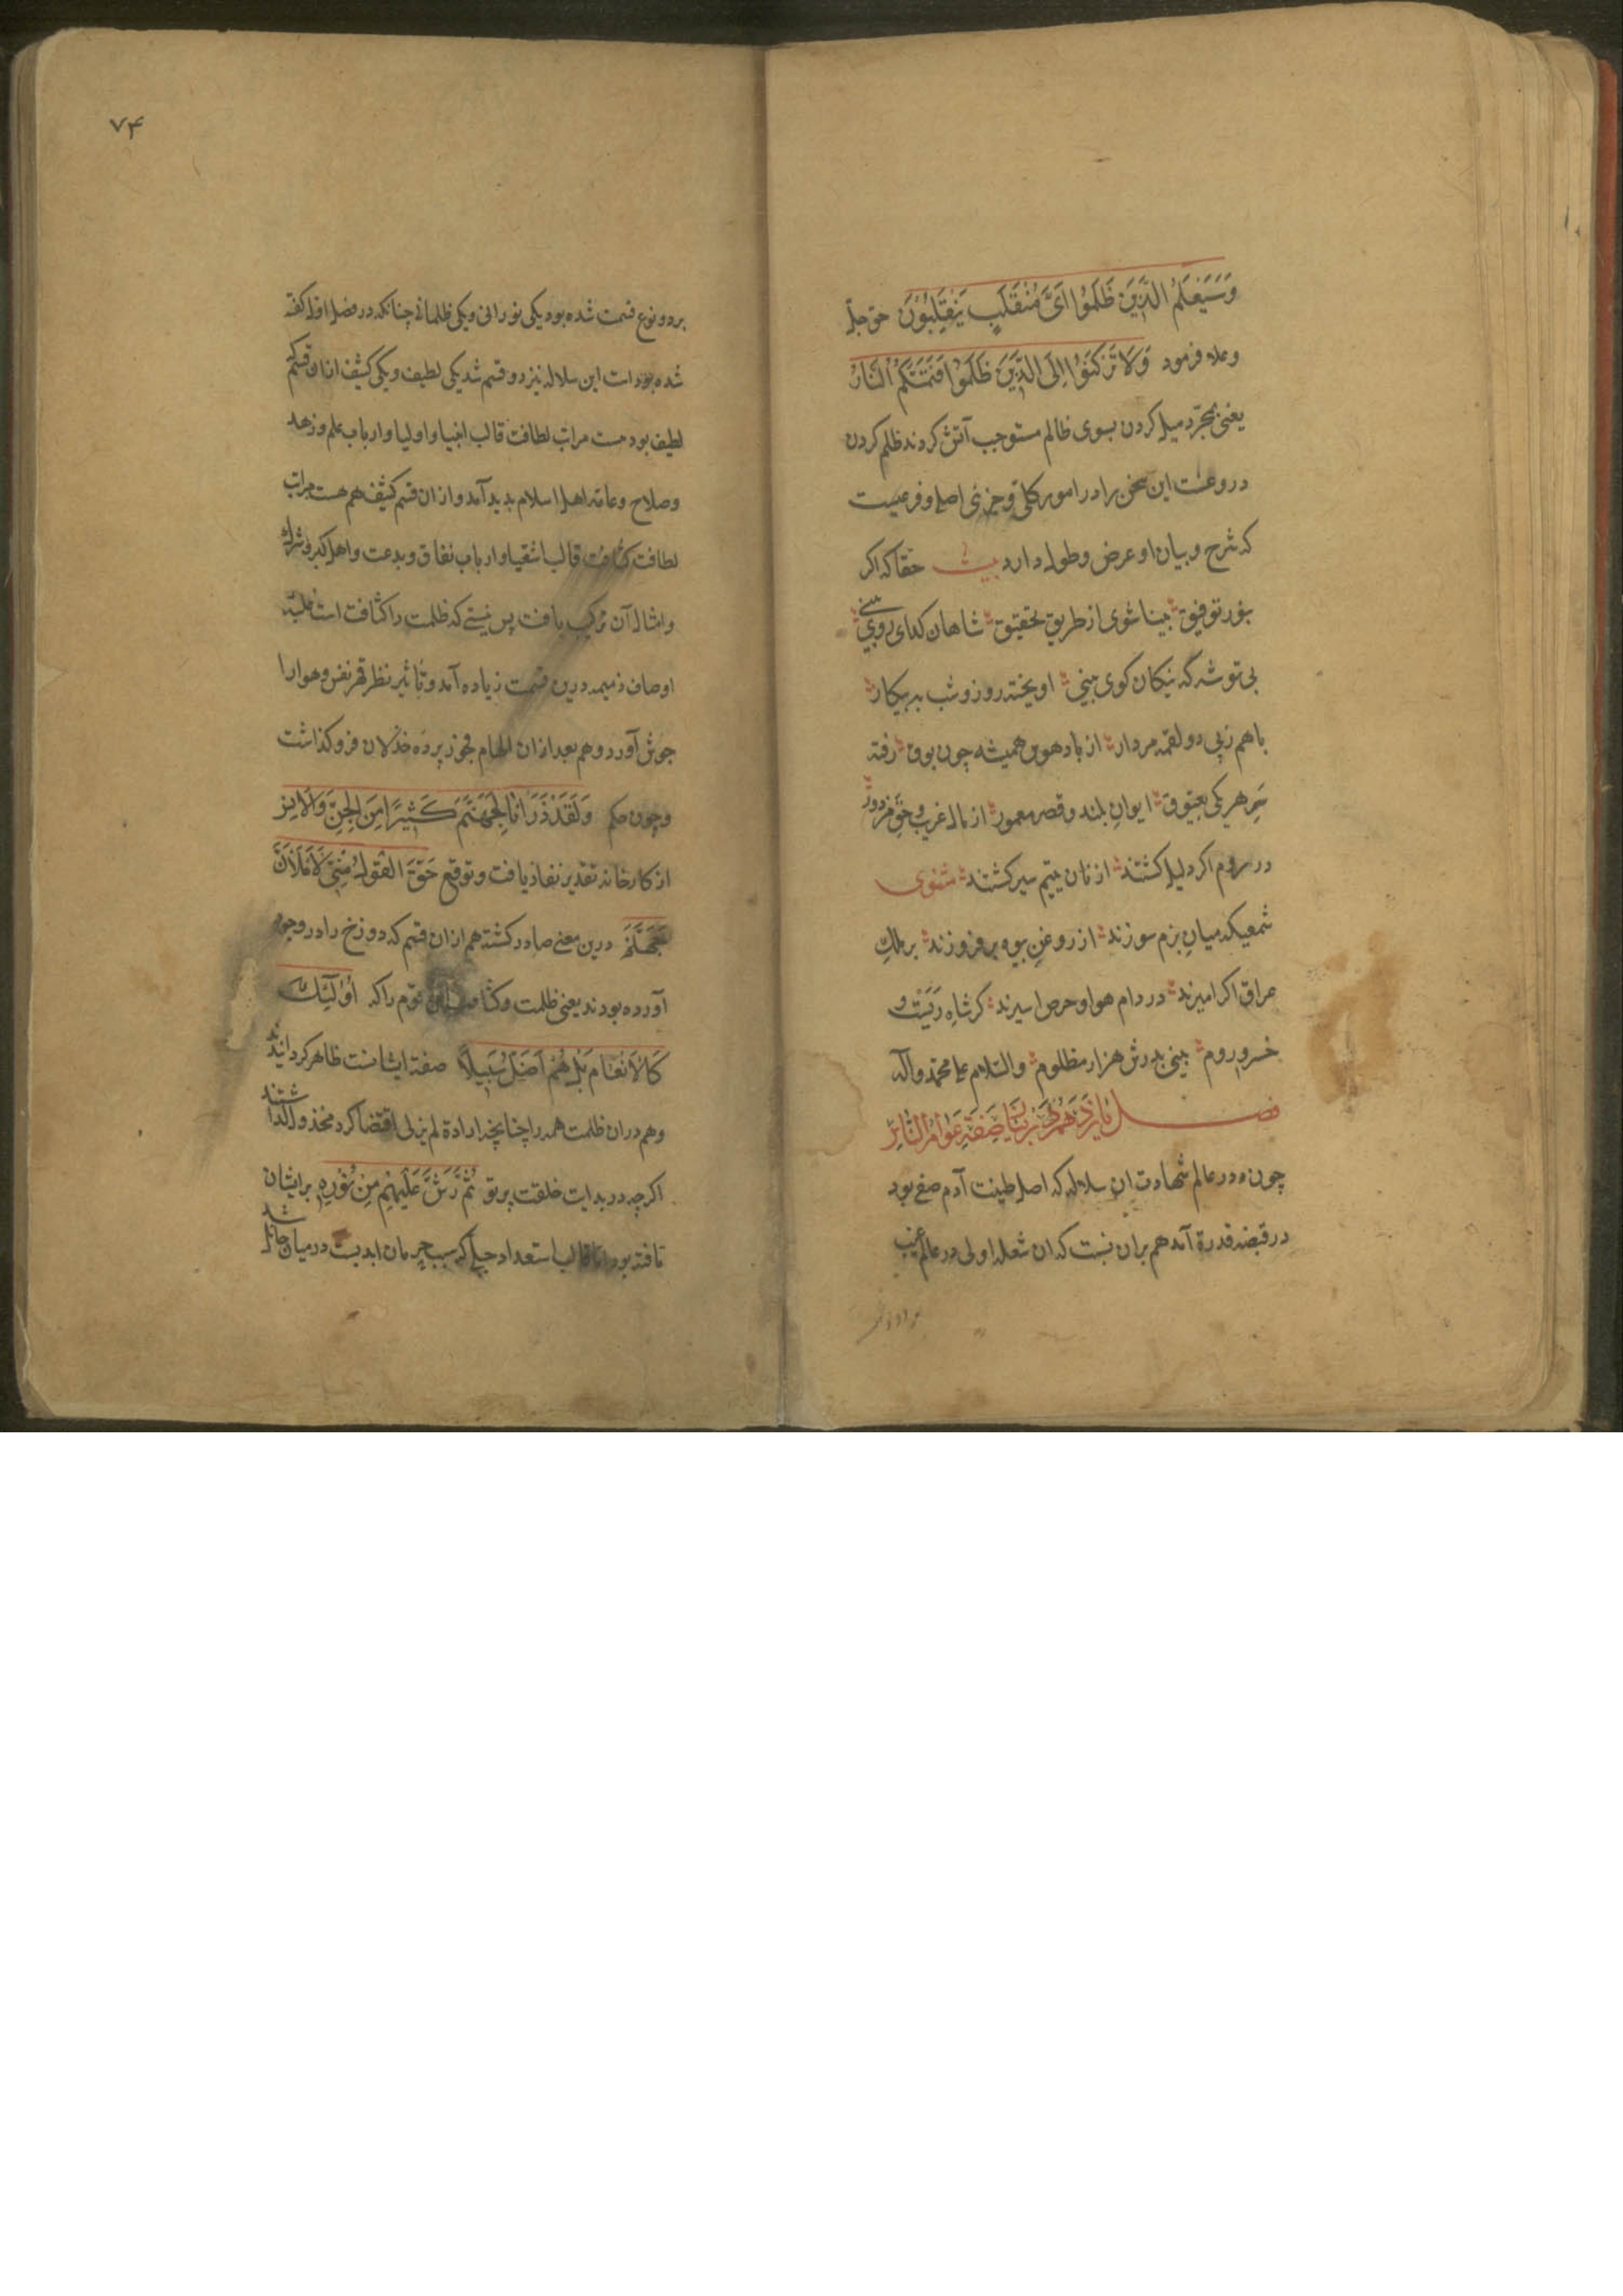 وَسَيَعْلَمُ الَّذِينَ ظَلَمُوا اَىَّ مُنْقَلَبٍ يَنْقَلِبُونَ حق جلّ
وعلا فرمود وَلَا تَرْكَنُوا اِلَى الَّذِينَ ظَلَمُوا فَتَمَسَّكُمُ النَّارُ
يعنى بمجرّد ميل كردن بسوى ظالم مستوجب آتش كردند ظلم كردن
در وعست اين سخن را در امور كلّى و جزئى اصل و فرعيست
كه شرح و بيان او عرض و طول دارد بيت حقا كه اكر
بنور توفيق بينا شوى از طريق تحقيق شاهان كداى روى بينى
بى توشه كه نيكان كوى بينى اويخته روز و شب به پيكار
باهم زپى دو لقمه مردار از باد هوس هميشه چون بوق رفته
سر هر يكى بعيّوق ايوان بلند و قصر معمور از مال غريب و حق مزدور
در روم اكر دلير كشتند از نان يتيم سير كشتند مثنوى
شمعيكه ميان بزم سوزند از روغن بيوه بر فروزند بر ملك
عراق اكر اميرند در دام هوا و حرص اسيرند كر شاه ريَست و
خسرو روم بينى بدرش هزار مظلوم والسّلام على محمّد وآله
فصل يازدهم در بيان صفة عوام الناس
چون در عالم شهادت ان سلاله كه اصل طينت آدم صفى بود
در قبضه قدرة آمد هم بران نسبت كه ان شعله اولى در عالم غيب
۷۴
بر دو نوع قسمت شده بود يكى نورانى و يكى ظلمانى چنانكه در فصل اول كفته
شده بود است اين سلاله نيز دو قسم شد يكى لطيف و يكى كثيف از ان قسم كه
لطيف بود هست مراتب لطافت قالب انبيا و اوليا و ارباب علم و زهد
و صلاح و عامه اهل اسلام پديد آمد و از ان قسم كثيف هم هست مراتب
لطافت كثافت قالب اشقيا و ارباب نفاق و بدعت و اهل كبر و شرك
و امثال آن تركيب يافت پس نيستى كه ظلمت را كثافت است
اوصاف ذميمه درين قسمت زياده آمد و تأثير نظر قهر نفس و هوا را
جوش آورد و هم بعد از ان الهام فجور پرده خذلان فرو كذاشت
و چون حكم وَلَقَدْ ذَرَأْنَا لِجَهَنَّمَ كَثِيرًا مِنَ الْجِنِّ وَالْاِنْسِ
از كارخانه تقدير نفاذ يافت و توقيع حَقَّ الْقَوْلُ مِنِّى لَاَمْلَاَنَّ
جَهَنَّمَ درين معنى صادر كشته هم از ان قسم كه دوزخ را در وجود
آورده بودند يعنى ظلمت و كثافت اين قوم را كه اُولَئِكَ
كَالْاَنْعَامِ بَلْ هُمْ اَضَلُّ سَبِيلًا صفة ايشانست ظاهر كردانيدند
و هم دران ظلمت همه را چنانچه ارادة لم يزلى اقتضا كرد مخذول كذاشتند
اكرچه در بدايت خلقت پرتو ثُمَّ رَشَّ عَلَيْهِمْ مِنْ نُورِهِ بر ايشان
تافته بود اما قالب استعداد جبلى كه سبب حرمان ابديست در ميان حايل شد